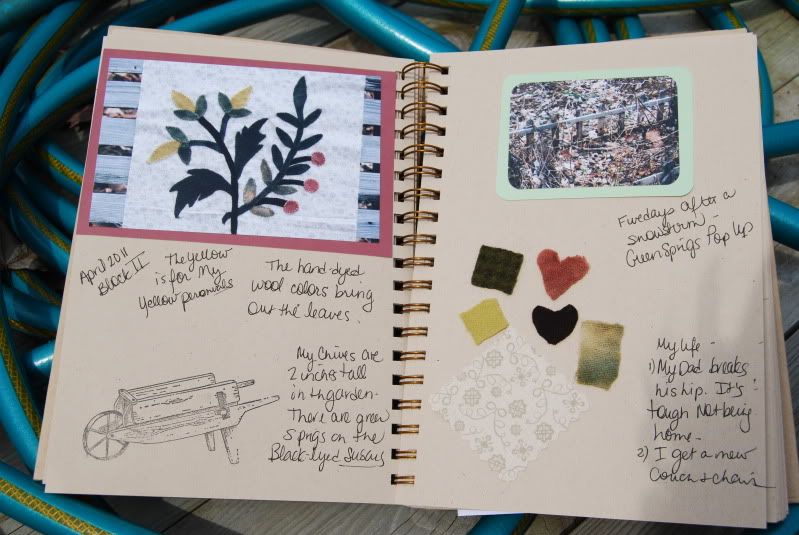 April 2011
Block II
The yellow
is for My
Yellow perennials
The hand-dyed
wool colors bring
out the leaves.
My Chives are
2 inches tall
in the garden.
There are green
sprigs on the
Black-eyed Susans
Five days after a
snowstorm -
Green Sprigs Pop Up
My life -
1) My Dad breaks
his hip. It's
tough Not being
home -
2) I get a new
Couch & chairs